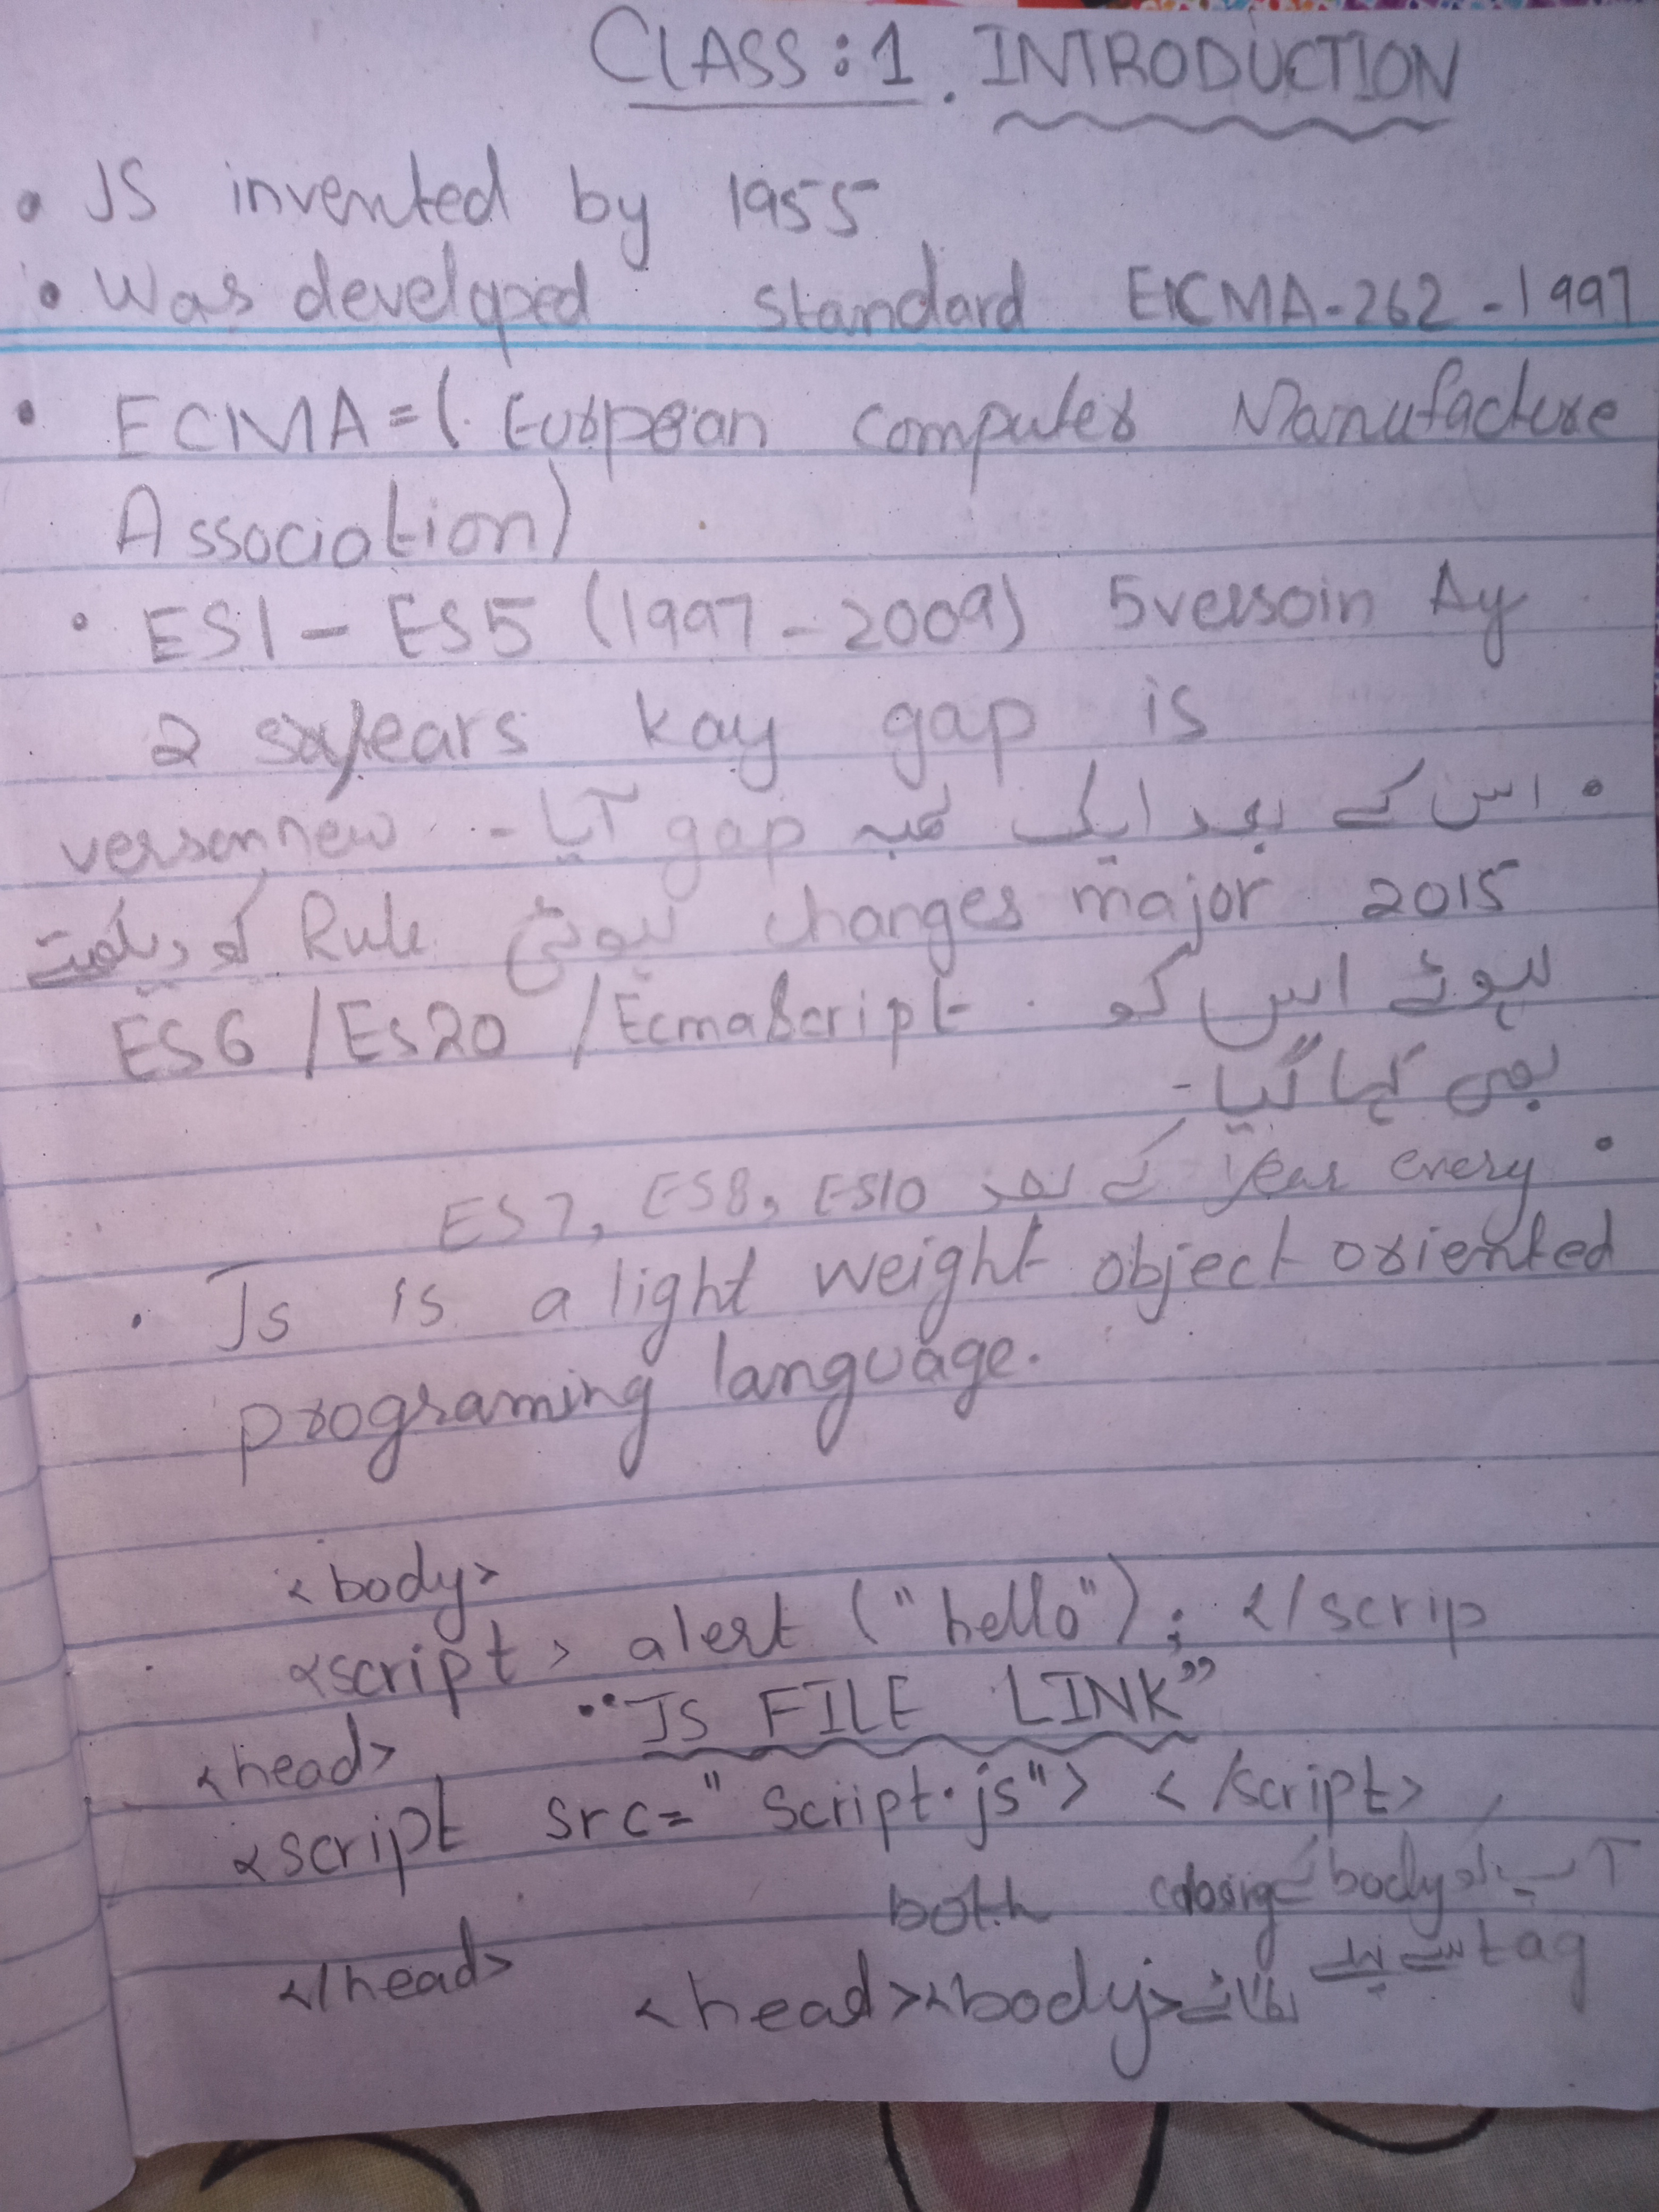 CLASS:1. INTRODUCTION
• JS invented by 1955
• Was developed standard ECMA-262-1997
• ECMA=(. European Computer Manufacture
Association)
• ES1 – ES5 (1997 – 2009) 5versoin Ay
2 years kay gap is
• اس کے بعد ایک gap آیا - new version
2015 major changes ہوئی Rule کو دیکھتے
ہوئے اس کو ES6 /Es20 /EcmaScript
بھی کہا گیا-
• every year کے بعد ES7, ES8, ES10
• Js is a light weight object oriented
programing language.
<body>
<script> alert ("hello"); </scrip
"JS FILE LINK"
<head>
<script src="Script.js"> </script>
both closing body
</head> <head><body> tag سے پہلے